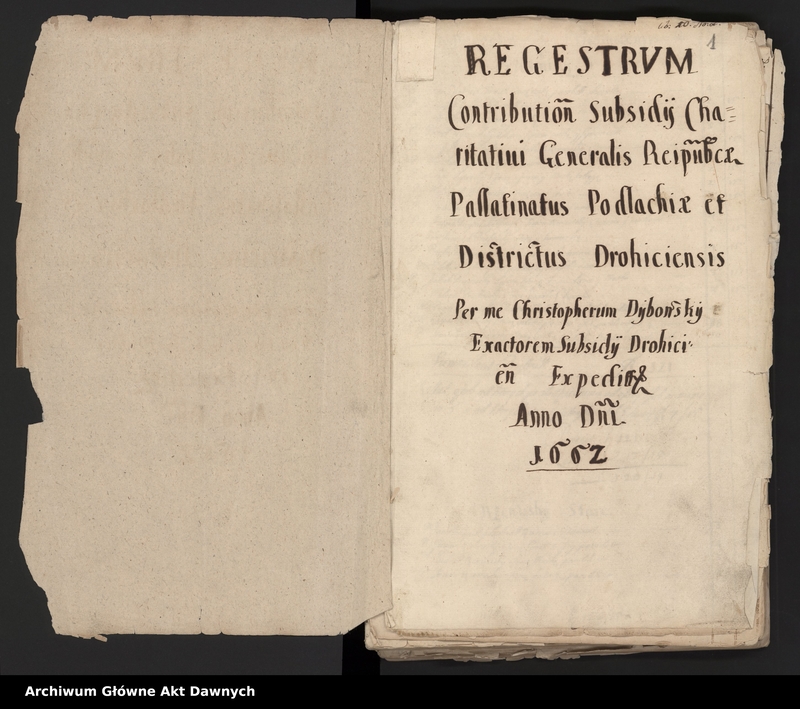 1
REGESTRVM
Contributioñ Subsidÿ Cha=
ritatiui Generalis Reipub̃cæ
Pallatinatus Podlachiæ et
Districtus Drohiciensis
Per me Christopherum Dÿbowskÿ
Exactorem Subsidÿ Drohici
eñ
Anno Dñi
1662
Archiwum Główne Akt Dawnych